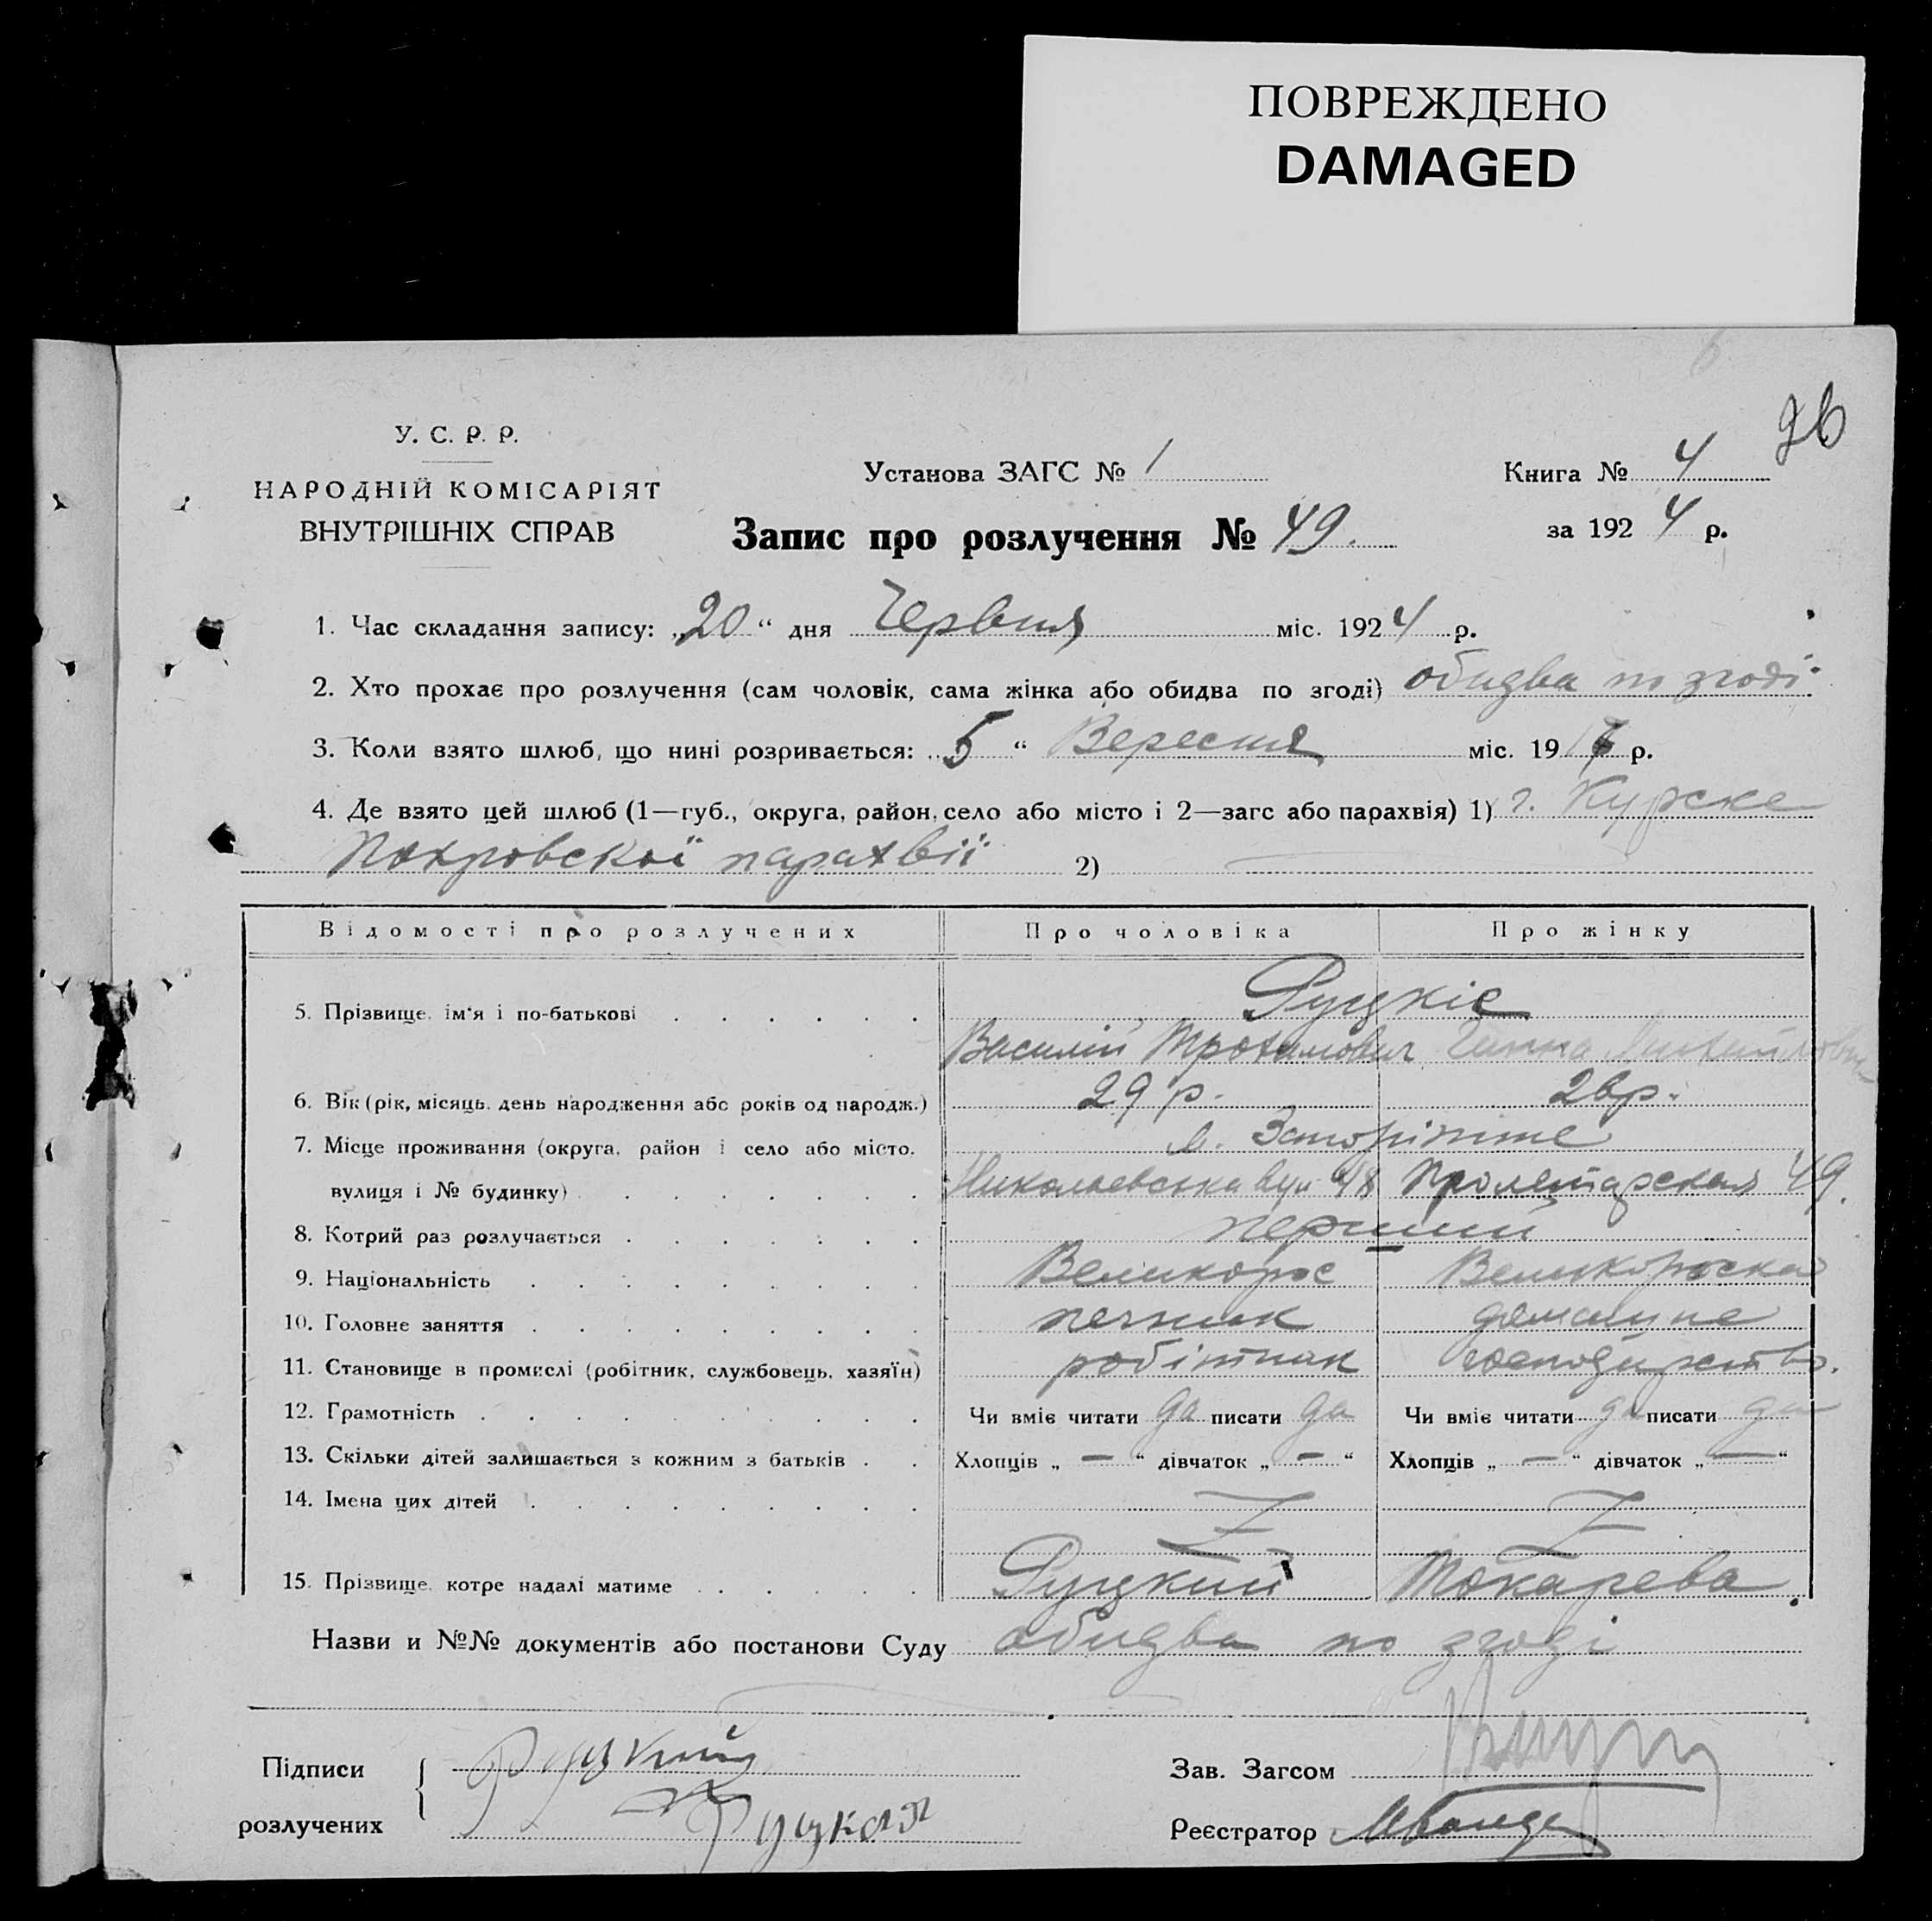 ПОВРЕЖДЕНО
DAMAGED
26
У. С. Р. Р.
НАРОДНІЙ КОМІСАРІЯТ
ВНУТРІШНІХ СПРАВ
Установа ЗАГС № 1
Книга № 4
Запис про розлучення № 49.
за 1924 р.
1. Час складання запису: „20“ дня Червня міс. 1924 р.
2. Хто прохає про розлучення (сам чоловік, сама жінка або обидва по згоді) обидва по згоді
3. Коли взято шлюб, що нині розривається: 5 “ Вересня міс. 1917 р.
4. Де взято цей шлюб (1—губ., округа, район, село або місто і 2—загс або парахвія) 1) г. Курске
Покровскої парахвії 2)
Відомості про розлучених Про чоловіка Про жінку
5. Прізвище, ім‘я і по-батькові Руцкіе
Василій Трохимович Ганна
6. Вік (рік, місяць, день народження або років од народж.) 29 р. 26 р.
7. Місце проживання (округа, район і село або місто, м. Запоріжже
вулиця і № будинку) Николаевська вул 48 Пролетарская 49.
8. Котрий раз розлучається перший
9. Національність Великорос Великороска
10. Головне заняття печник домашнє
11. Становище в промислі (робітник, службовець, хазяїн) робітник господарство.
12. Грамотність Чи вміє читати да писати да Чи вміє читати да писати да
13. Скільки дітей залишається з кожним з батьків Хлопців „ — “ дівчаток „ — “ Хлопців „ — “ дівчаток „ — “
14. Імена цих дітей
15. Прізвище, котре надалі матиме Руцкий Токарева
Назви и №№ документів або постанови Суду обидва по згоді
Підписи Руцкий Зав. Загсом
розлучених Руцкая Реєстратор